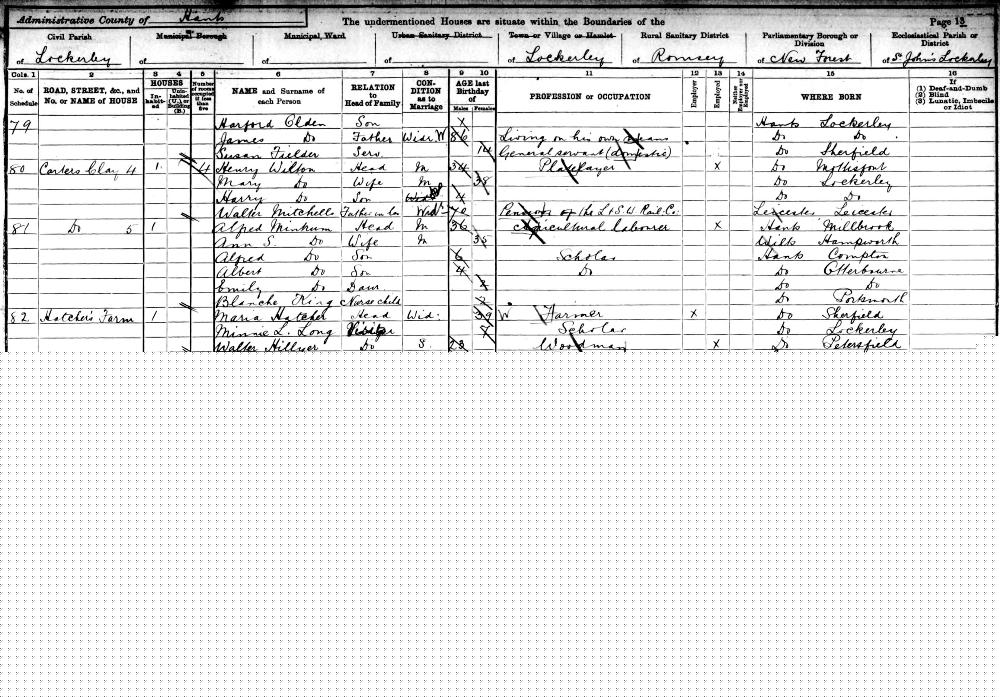 Administrative County of Hants
The undermentioned Houses are situate within the Boundaries of the
Page 13
Civil Parish
of Lockerley
Municipal Borough
of
Municipal Ward
of
Urban Sanitary District
of
Town or Village or Hamlet
of Lockerley
Rural Sanitary District
of Romsey
Parliamentary Borough or Division
of New Forest
Ecclesiastical Parish or District
of St John's Lockerley
Cols. 1 2 3 4 5 6 7 8 9 10 11 12 13 14 15 16
No. of Schedule
ROAD, STREET, &c., and No. or NAME of HOUSE
HOUSES
Inhabited
Uninhabited (U.) or Building (B.)
Number of rooms occupied if less than five
NAME and Surname of each Person
RELATION to Head of Family
CONDITION as to Marriage
AGE last Birthday of
Males Females
PROFESSION or OCCUPATION
Employer
Employed
Neither Employer nor Employed
WHERE BORN
If
(1) Deaf-and-Dumb
(2) Blind
(3) Lunatic, Imbecile or Idiot
79 Harford Olden Son Hants Lockerley
James Do Father Widr. W 86 Living on his own means Do Do
Susan Fielder Serv. 14 General servant (domestic) Do Sherfield
80 Carters Clay 4 1 4 Henry Wilton Head M 34 Platelayer x Do Mottisfont
Mary Do Wife M 38 Do Lockerley
Harry Do Son Do Do
Walter Mitchells Father in law Widr 70 Pensioner of the L & S W Rail. Co. Leicester Leicester
81 Do 5 1 Alfred Minkum Head M 36 Agricultural labourer x Hants Millbrook
Ann S. Do Wife M Wilts Hampworth
Alfred Do Son 6 Scholar Hants Compton
Albert Do Son 4 Do Do Otterbourne
Emily Do Daur. Do Do
Blanche King Nurse child Do Porksmorth
82 Hatcher's Farm 1 Maria Hatcher Head Wid. 59 W Farmer x Do Sherfield
Minnie L. Long Visitor Scholar Do Lockerley
Walter Hillyer Do S. 23 Woodman x Do Petersfield